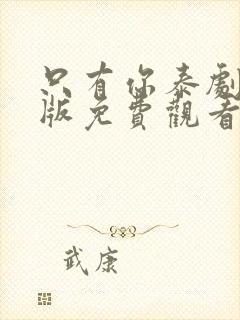 只有你泰劇
版免費觀看
武康